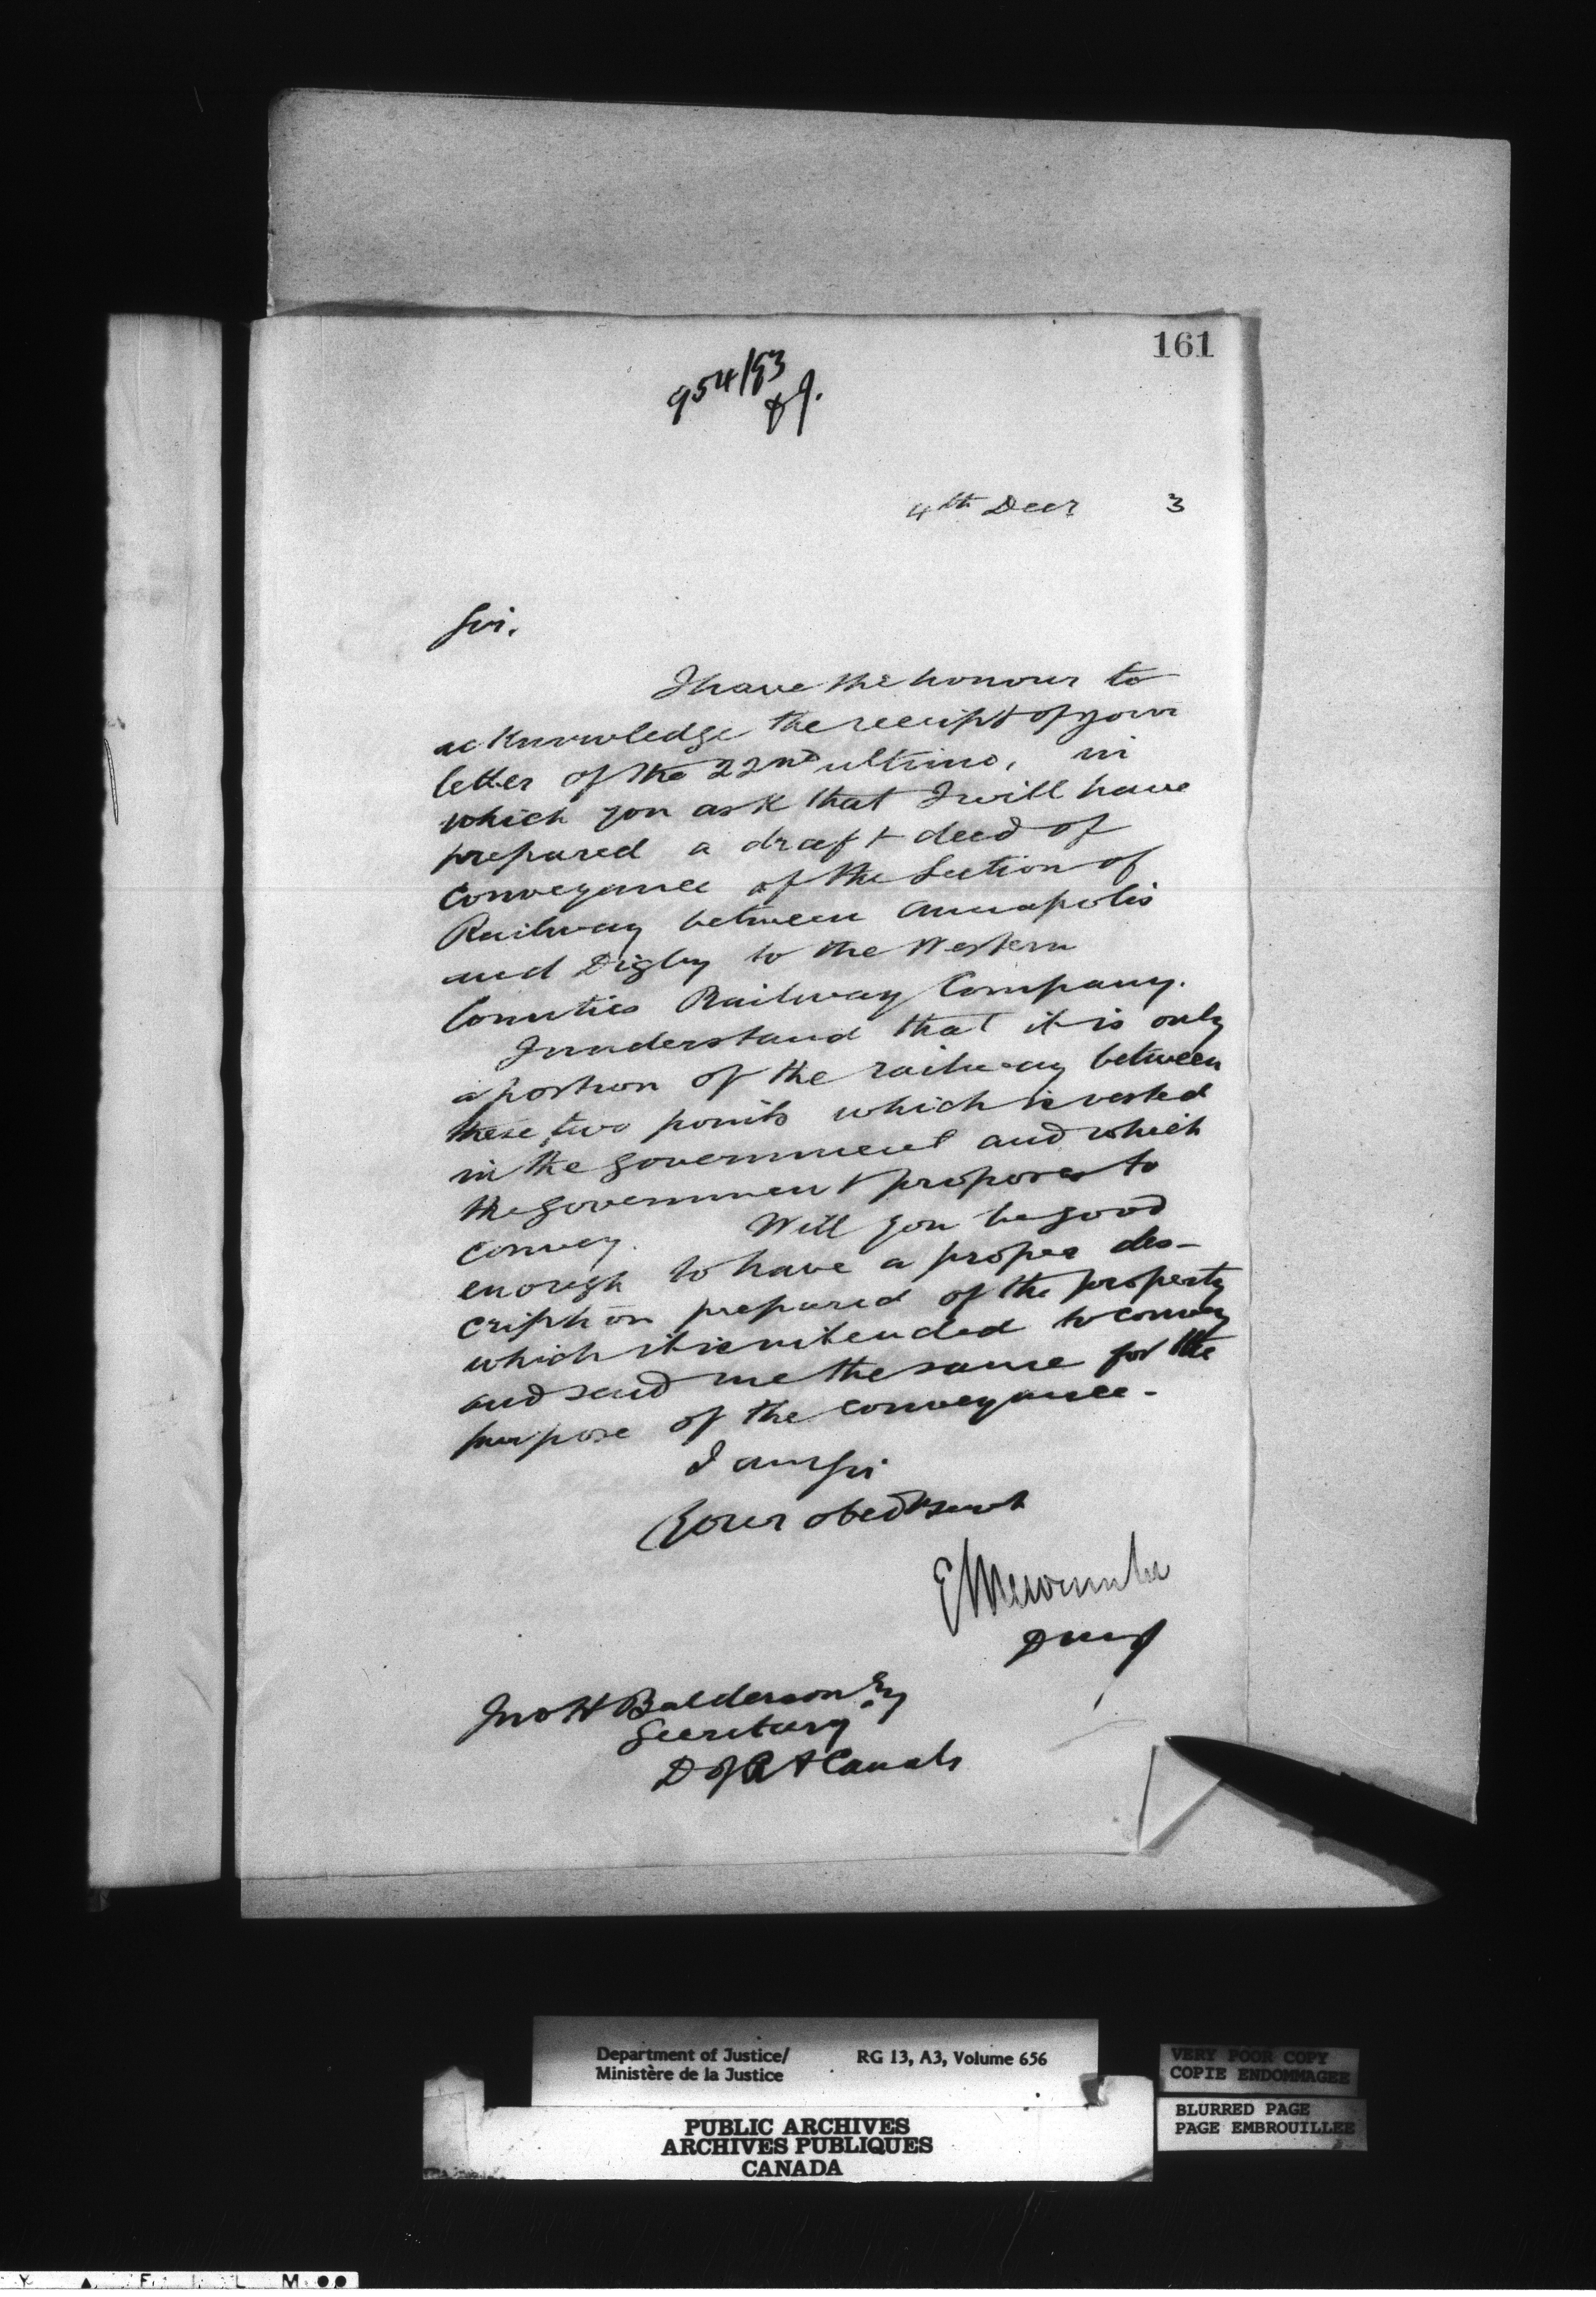 161
954/93
4th Decr 3
Sir.
I have the honour to
acknowledge the receipt of your
letter of the 22nd ultimo, in
which you ask that I will have
prepared a draft deed of
conveyance of the Section of
Railway between Annapolis
and Digby to the Western
Counties Railway Company.
I understand that it is only
a portion of the railway between
these two points which is vested
in the government and which
the government proposes to
convey. Will you be good
enough to have a proper des-
cription prepared of the property
which it is intended to convey
and send me the same for the
purpose of the conveyance.
I am Sir
Your obedt servt
E L Newcombe
DMJ
Jno H Balderson Esq
Secretary
D of R & Canals
Department of Justice/ RG 13, A3, Volume 656
Ministère de la Justice
VERY POOR COPY
COPIE ENDOMMAGEE
BLURRED PAGE
PAGE EMBROUILLEE
PUBLIC ARCHIVES
ARCHIVES PUBLIQUES
CANADA